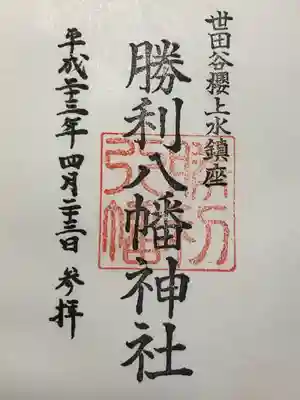 世田谷櫻上水鎮座
勝利八幡神社
平成二十三年四月二十三日参拝
勝利
八幡